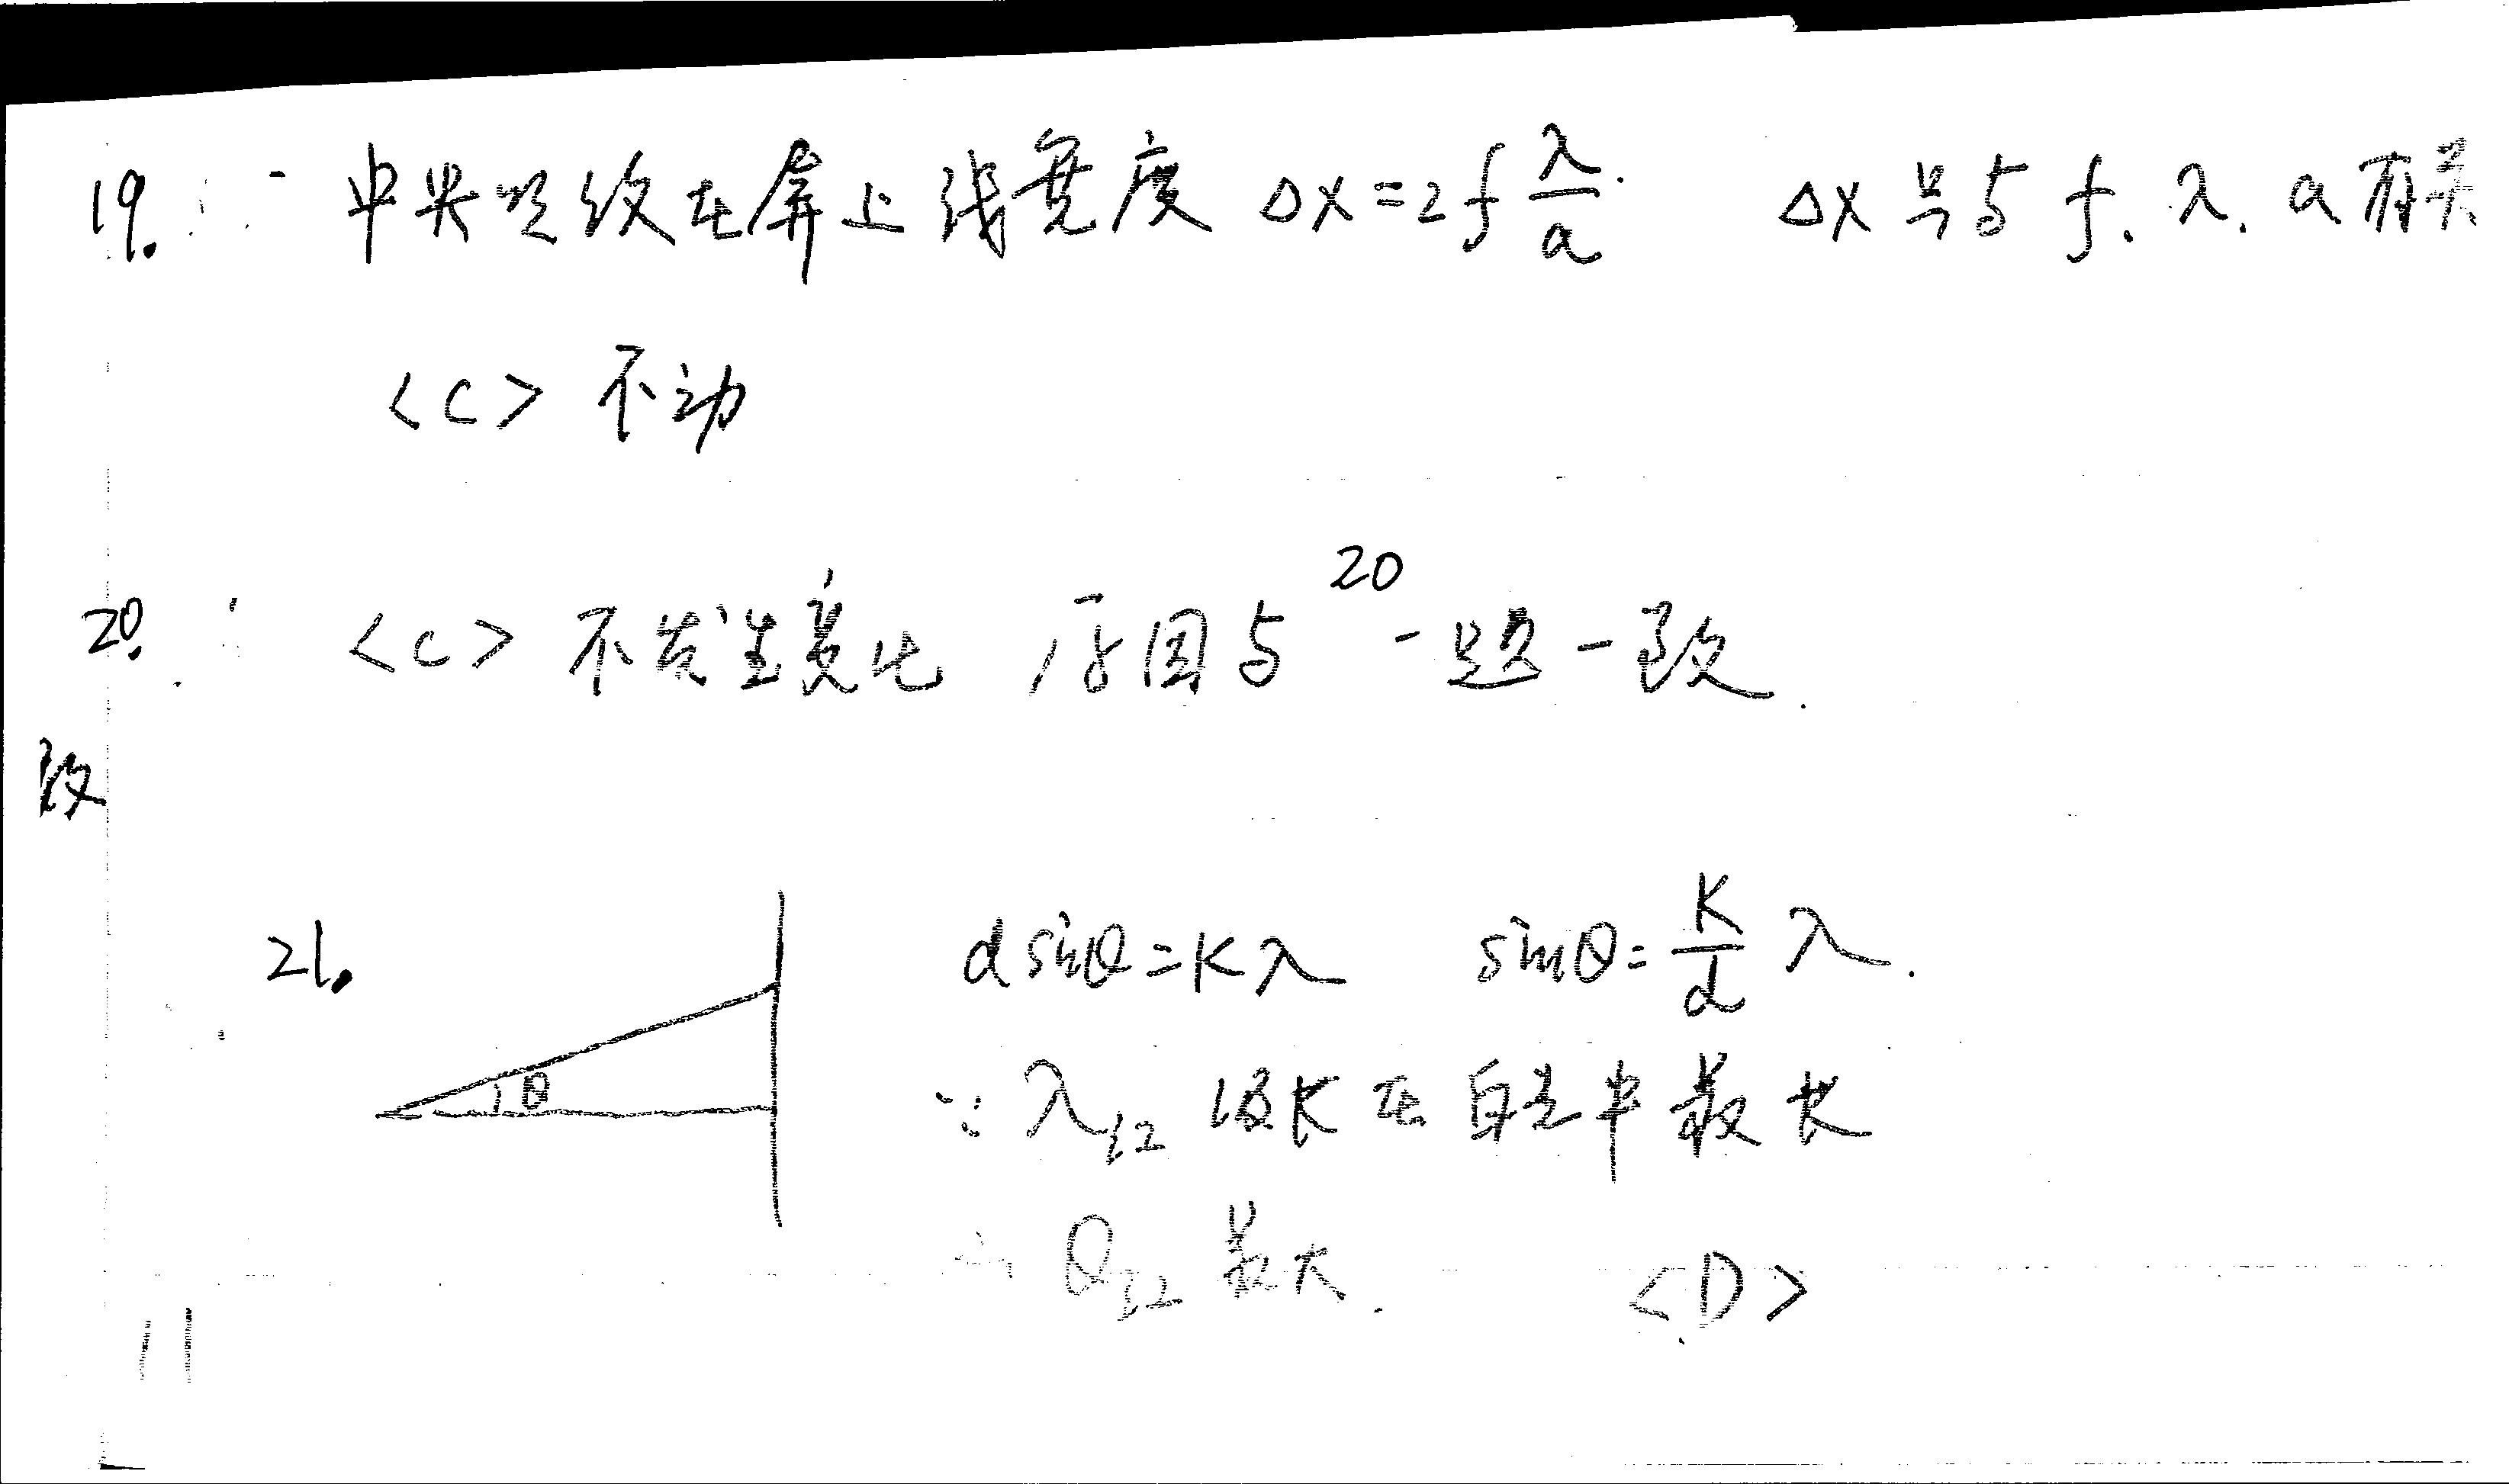 19. ∵ 中央明纹在屏上线宽度 Δx=2f λ/a. Δx只与 f. λ. a 有关
<C> 不动
20
20. <C> 不发生变化 原因与 一题一致.
改
21. d sinθ=Kλ sinθ= K/d λ.
θ ∵ λ红 波长在白光中最长
∴ θ红 最大. <D>
11